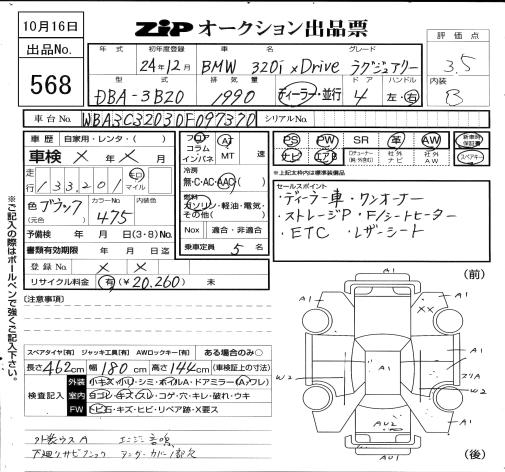 10月16日
ZiP オークション出品票
出品No.
568
年式 初年度登録 車名 グレード
24年12月 BMW 320i xDrive ラグジュアリー
型式 排気量 ドア ハンドル
DBA-3B20 1990 ディーラー・並行 4 左・右
評価点
3.5
内装
B
車台No. WBA3C32030DF097370 シリアルNo.
車歴 自家用・レンタ・( )
車検 × 年 × 月
走行 133,201 km マイル
色 ブラック (元色) カラーNo. 475 内装色
予備検 年 月 日(3・8) No.
書類有効期限 年 月 日迄
登録No. × ×
リサイクル料金 有(¥20,260) 未
フロア コラム インパネ AT MT 速
冷房 無・C・AC・AAC・( )
燃料 ガソリン・軽油・電気・その他( )
Nox 適合・非適合
乗車定員 5 名
PS PW SR 革 AW 新車時保証書
ナビ エアB 社外ナビ 社外AW スペアキー
※上記太枠内は標準装備品
セールスポイント
・ディーラー車・ワンオーナー
・ストレージP・F/シートヒーター
・ETC・レザーシート
※ご記入の際はボールペンで強くご記入下さい。
(注意事項)
スペアタイヤ[有] ジャッキ工具[有] AWロックキー[有] ある場合のみ○
長さ462cm 幅180cm 高さ144cm (車検証上の寸法)
検査記入
外装 小キズ・小リ・シミ・ボイルA・ドアミラー(A・ワレ)
室内 ヨゴレ・キズ・スレ・コゲ・穴・キレ・破れ・ウキ
FW トビ石・キズ・ヒビ・リペア跡・X要ス
外装ウスA エンジン音鳴
下廻りサビ アンダーカバー
(前)
A1
A1
XX
A1
W2
A1
A1
W2
AU2
A1
(後)